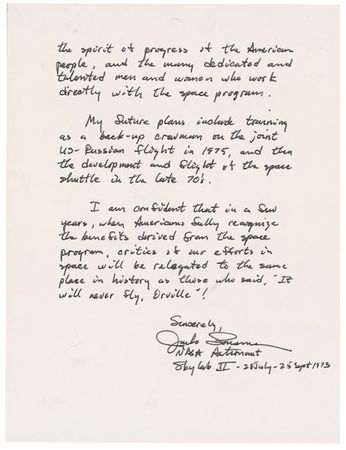 the spirit of progress of the American
people, and the many dedicated and
talented men and women who work
directly with the space program.
My future plans include training
as a back-up crewman on the joint
US-Russian flight in 1975, and then
the development and flight of the space
shuttle in the late 70's.
I am confident that in a few
years, when Americans fully recognize
the benefits derived from the space
program, critics of our efforts in
space will be relegated to the same
place in history as those who said, "It
will never fly, Orville"!
Sincerely,
Jack Lousma
NASA Astronaut
Skylab II - 28 July - 25 Sept 1973